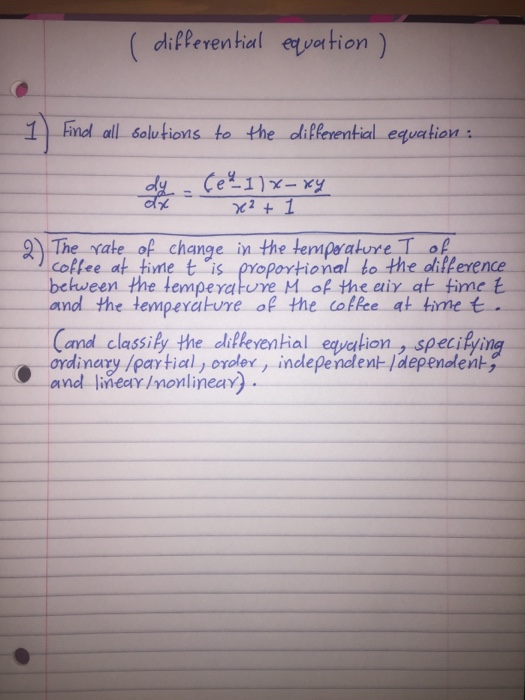 ( differential equation )
1) Find all solutions to the differential equation :
dy/dx = (e^y-1)x-xy / x²+1
2) The rate of change in the temperature T of
coffee at time t is proportional to the difference
between the temperature M of the air at time t
and the temperature of the coffee at time t .
(and classify the differential equation, specifying
ordinary/partial, order, independent/dependent,
and linear/nonlinear).